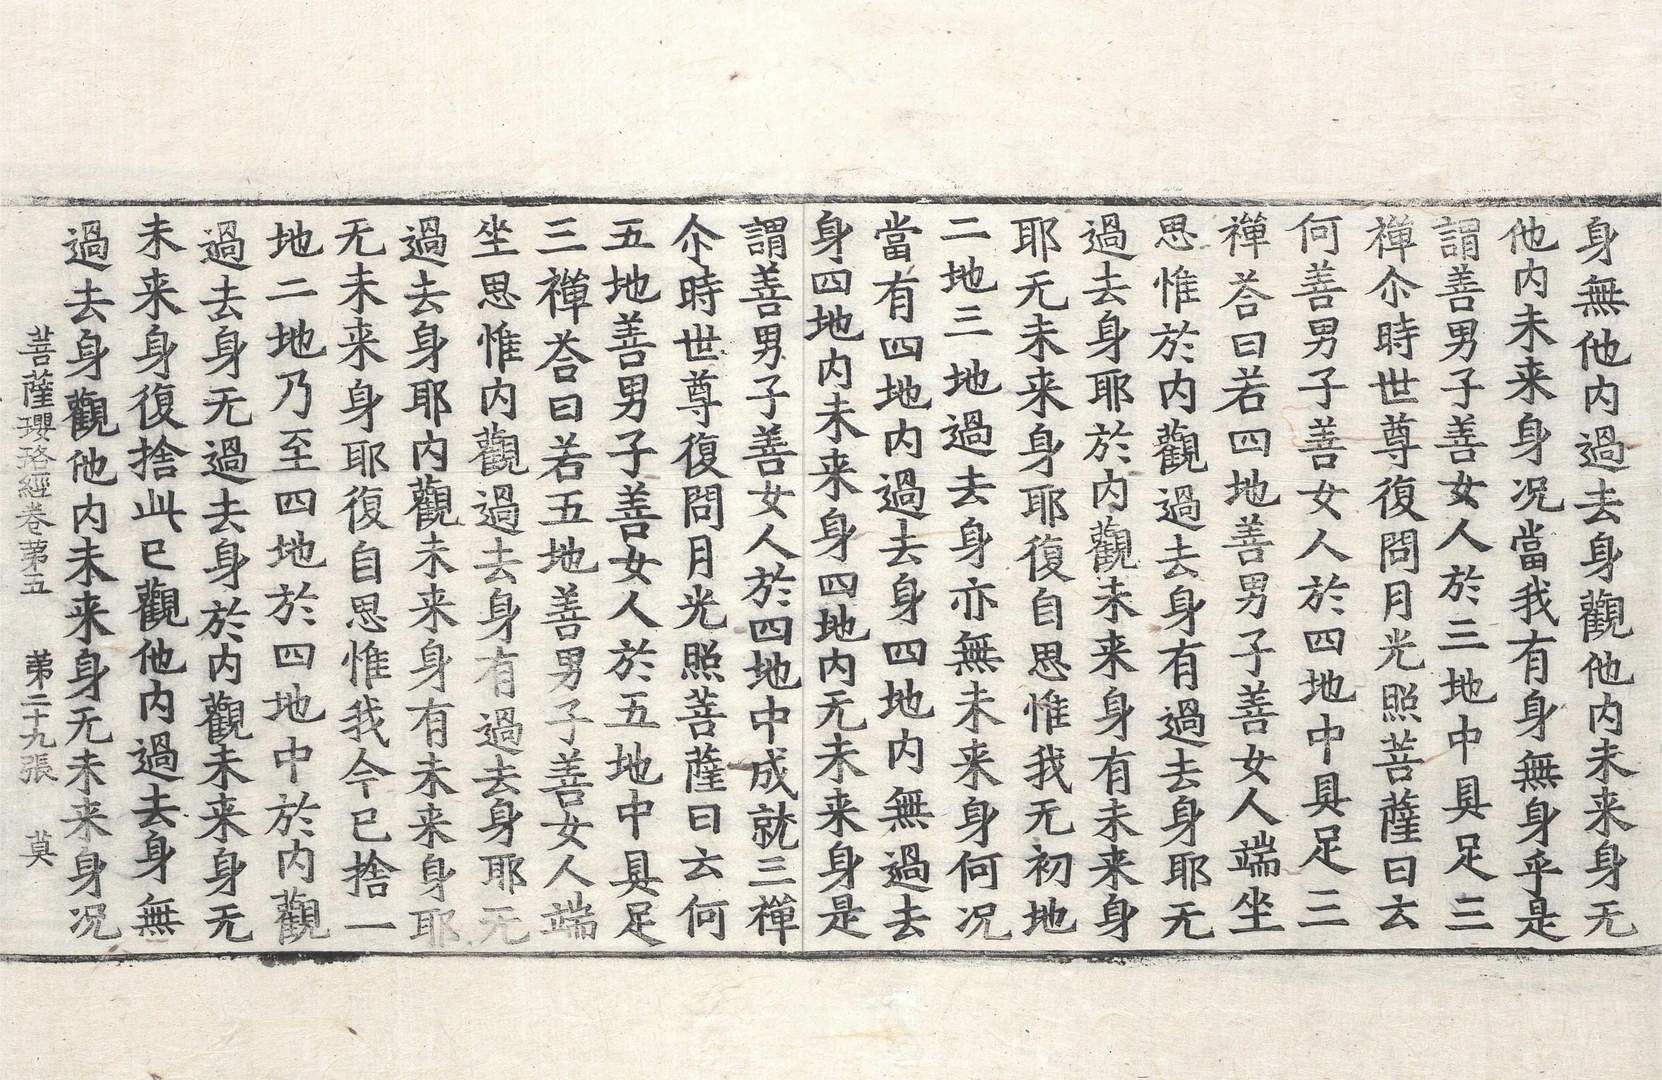 身無他内過去身觀他内未来身无
他内未来身况當我有身無身乎是
謂善男子善女人於三地中具足三
禪尒時世尊復問月光照菩薩曰云
何善男子善女人於四地中具足三
禪荅曰若四地善男子善女人端坐
思惟於内觀過去身有過去身耶无
過去身耶於内觀未来身有未来身
耶无未来身耶復自思惟我无初地
二地三地過去身亦無未来身何况
當有四地内過去身四地内無過去
身四地内未来身四地内无未来身是
謂善男子善女人於四地中成就三禪
尒時世尊復問月光照菩薩曰云何
五地善男子善女人於五地中具足
三禪荅曰若五地善男子善女人端
坐思惟内觀過去身有過去身耶无
過去身耶内觀未来身有未来身耶
无未来身耶復自思惟我今已捨一
地二地乃至四地於四地中於内觀
過去身无過去身於内觀未来身无
未来身復捨此已觀他内過去身無
過去身觀他内未来身无未来身况
菩薩瓔珞經卷苐五 苐二十九張 莫